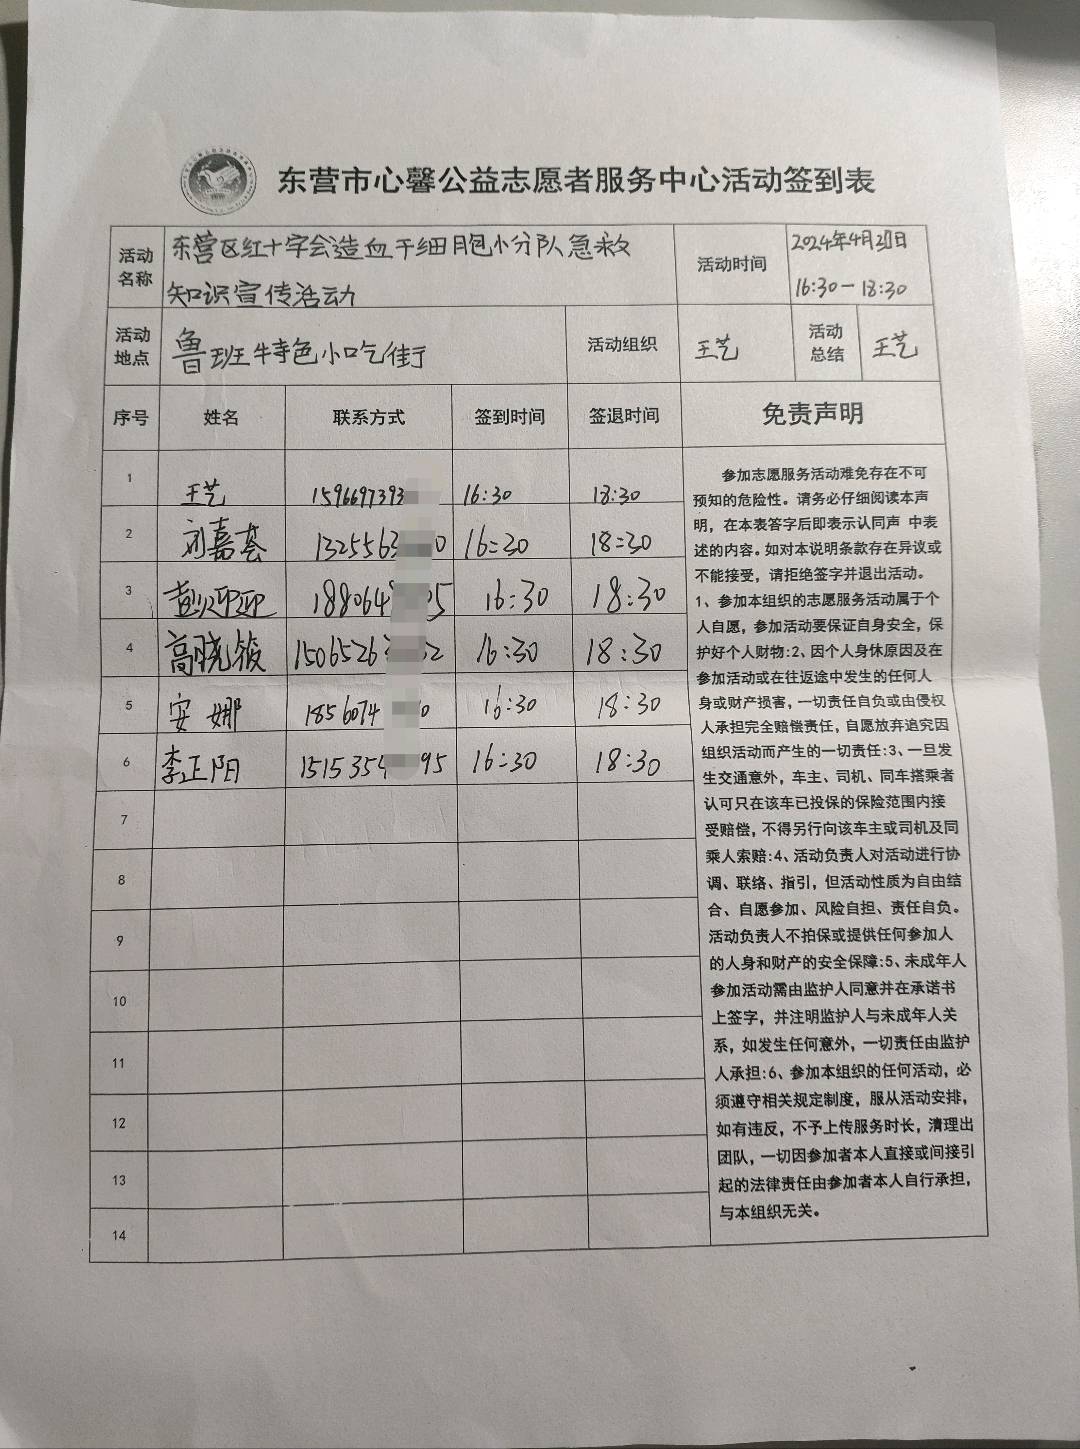 东营市心馨公益志愿者服务中心活动签到表
活动名称 东营区红十字会造血干细胞小分队急救知识宣传活动 活动时间 2024年4月 16:30-18:30
活动地点 鲁班特色小吃街 活动组织 王艺 活动总结 王艺
序号 姓名 联系方式 签到时间 签退时间 免责声明
1 王艺 159669739 16:30 18:30
2 刘嘉荟 1325563 0 16:30 18:30
3 彭迎迎 188064 05 16:30 18:30
4 高晓筱 1506526 2 16:30 18:30
5 安娜 1856074 0 16:30 18:30
6 李正阳 1515354 95 16:30 18:30
7
8
9
10
11
12
13
14
参加志愿服务活动难免存在不可
预知的危险性。请务必仔细阅读本声
明，在本表答字后即表示认同声 中表
述的内容。如对本说明条款存在异议或
不能接受，请拒绝签字并退出活动。
1、参加本组织的志愿服务活动属于个
人自愿，参加活动要保证自身安全，保
护好个人财物:2、因个人身休原因及在
参加活动或在往返途中发生的任何人
身或财产损害，一切责任自负或由侵权
人承担完全赔偿责任，自愿放弃追究因
组织活动而产生的一切责任:3、一旦发
生交通意外，车主、司机、同车搭乘者
认可只在该车已投保的保险范围内接
受赔偿，不得另行向该车主或司机及同
乘人索赔:4、活动负责人对活动进行协
调、联络、指引，但活动性质为自由结
合、自愿参加、风险自担、责任自负。
活动负责人不拍保或提供任何参加人
的人身和财产的安全保障:5、未成年人
参加活动需由监护人同意并在承诺书
上签字，并注明监护人与未成年人关
系，如发生任何意外，一切责任由监护
人承担:6、参加本组织的任何活动，必
须遵守相关规定制度，服从活动安排，
如有违反，不予上传服务时长，清理出
团队，一切因参加者本人直接或间接引
起的法律责任由参加者本人自行承担，
与本组织无关。